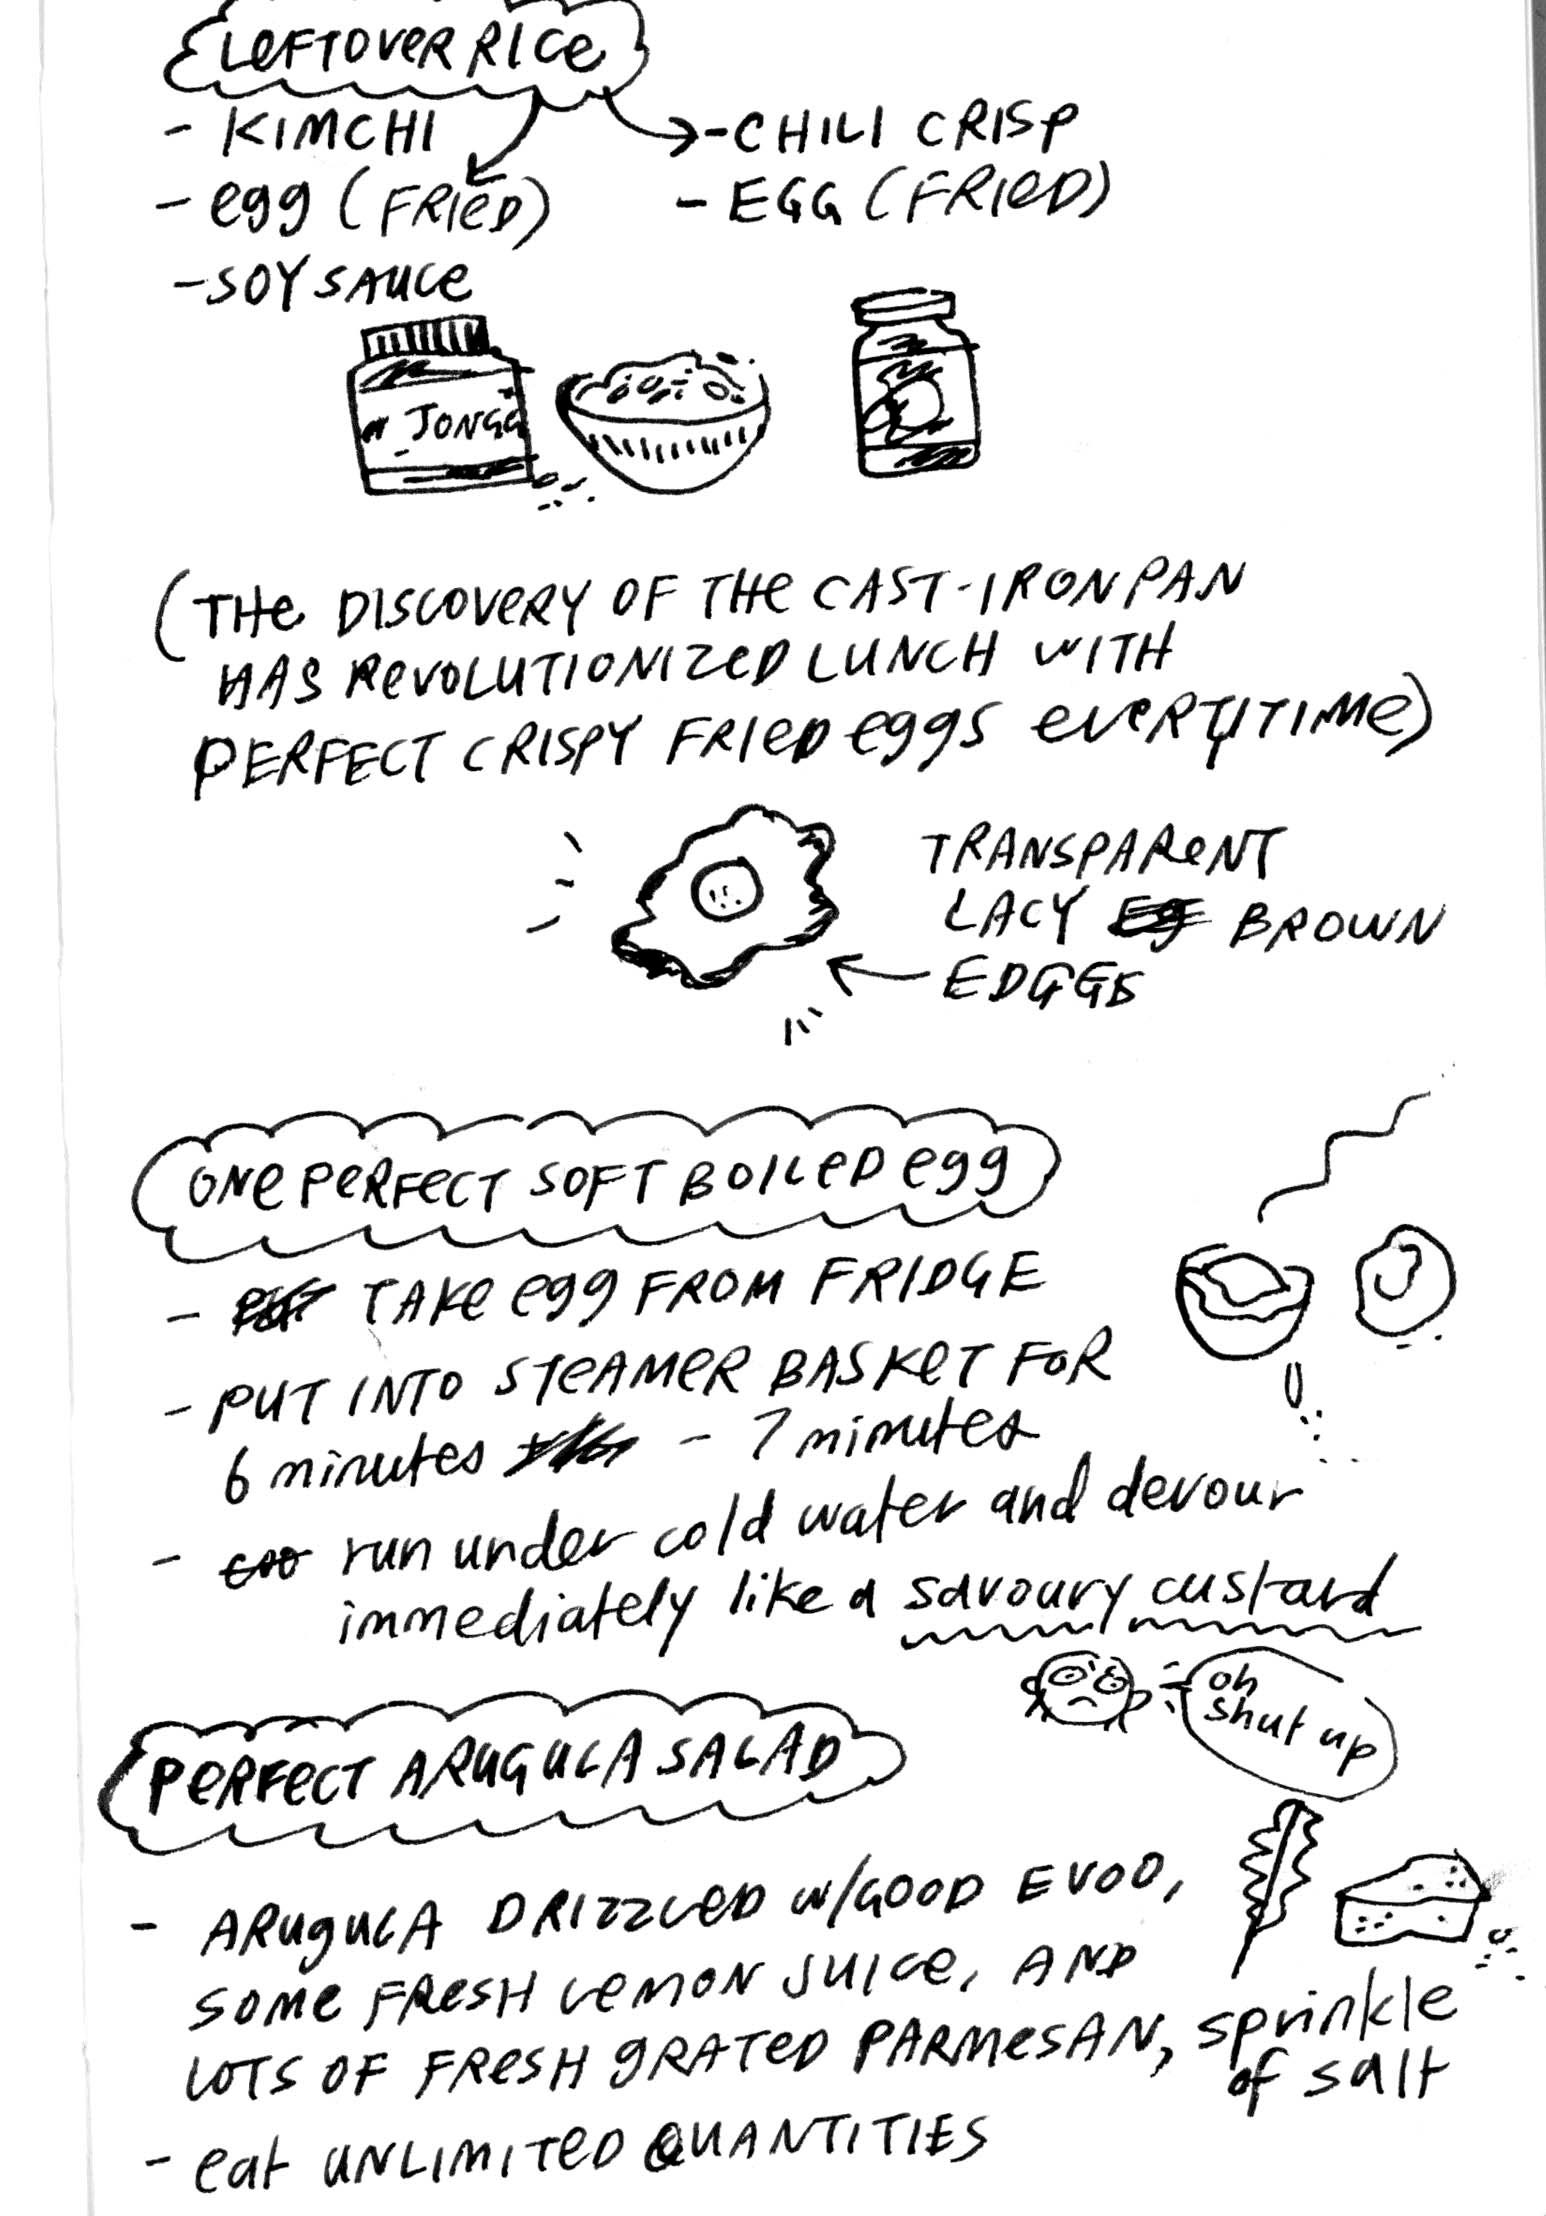 LEFTOVER RICE
- KIMCHI
- egg (FRIED)
- SOY SAUCE
- CHILI CRISP
- EGG (FRIED)
JONGG
(THE DISCOVERY OF THE CAST-IRON PAN
HAS REVOLUTIONIZED LUNCH WITH
PERFECT CRISPY FRIED eggS EVERYTIME)
TRANSPARENT
LACY BROWN
EDGGES
ONE PERFECT SOFT BOILED egg
- TAKE egg FROM FRIDGE
- PUT INTO STEAMER BASKET FOR
6 minutes - 7 minutes
- run under cold water and devour
immediately like a savoury custard
oh
shut up
PERFECT ARUGULA SALAD
- ARUGULA DRIZZLED W/GOOD EVOO,
SOME FRESH LEMON JUICE, AND
LOTS OF FRESH GRATED PARMESAN, sprinkle
of salt
- eat UNLIMITED QUANTITIES